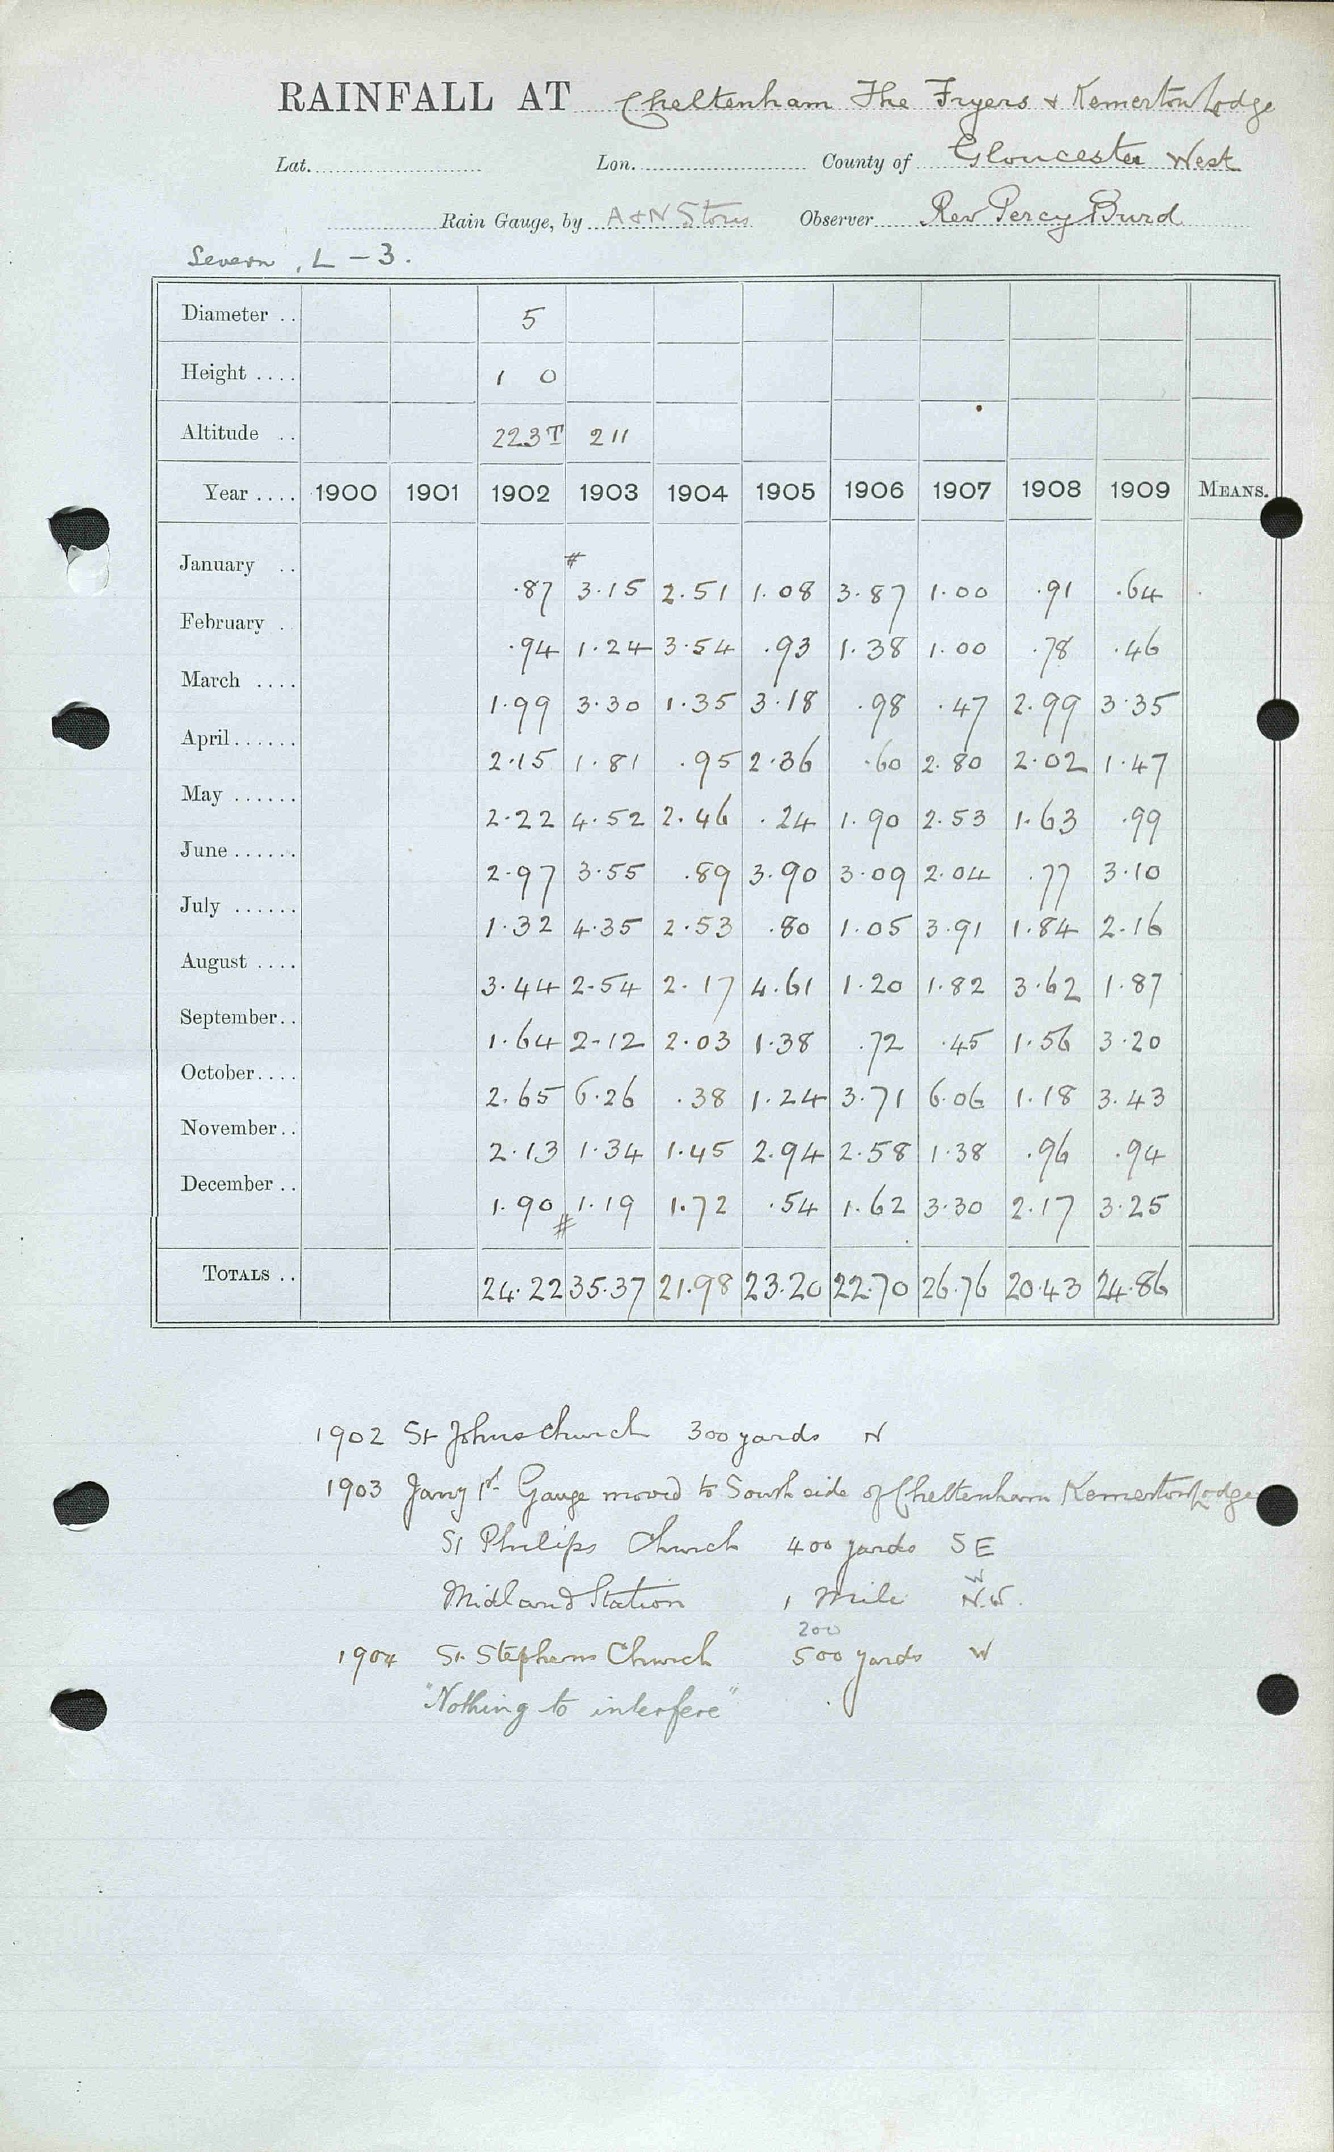 RAINFALL AT Cheltenham The Fryers & Kemerton Lodge
Lat. Lon. County of Gloucester West
Rain Gauge, by A & N Stores Observer Rev Percy Burd
Severn, L - 3.
Diameter .. 5
Height .... 1 0
Altitude .. 223T 211
Year .... 1900 1901 1902 1903 1904 1905 1906 1907 1908 1909 MEANS.
#
January .. .87 3.15 2.51 1.08 3.87 1.00 .91 .64
February .. .94 1.24 3.54 .93 1.38 1.00 .78 .46
March .... 1.99 3.30 1.35 3.18 .98 .47 2.99 3.35
April ...... 2.15 1.81 .95 2.36 .60 2.80 2.02 1.47
May ...... 2.22 4.52 2.46 .24 1.90 2.53 1.63 .99
June ...... 2.97 3.55 .89 3.90 3.09 2.04 .77 3.10
July ...... 1.32 4.35 2.53 .80 1.05 3.91 1.84 2.16
August .... 3.44 2.54 2.17 4.61 1.20 1.82 3.62 1.87
September .. 1.64 2.12 2.03 1.38 .72 .45 1.56 3.20
October .... 2.65 6.26 .38 1.24 3.71 6.06 1.18 3.43
November .. 2.13 1.34 1.45 2.94 2.58 1.38 .96 .94
December .. 1.90 1.19 1.72 .54 1.62 3.30 2.17 3.25
#
TOTALS .. 24.22 35.37 21.98 23.20 22.70 26.76 20.43 24.86
1902 St Johns Church 300 yards N
1903 Jany 1st Gauge moved to South side of Cheltenham Kemerton Lodge
St Philips Church 400 yards SE
W
Midland Station 1 Mile N.W.
200
1904 St Stephens Church 500 yards W
"Nothing to interfere"